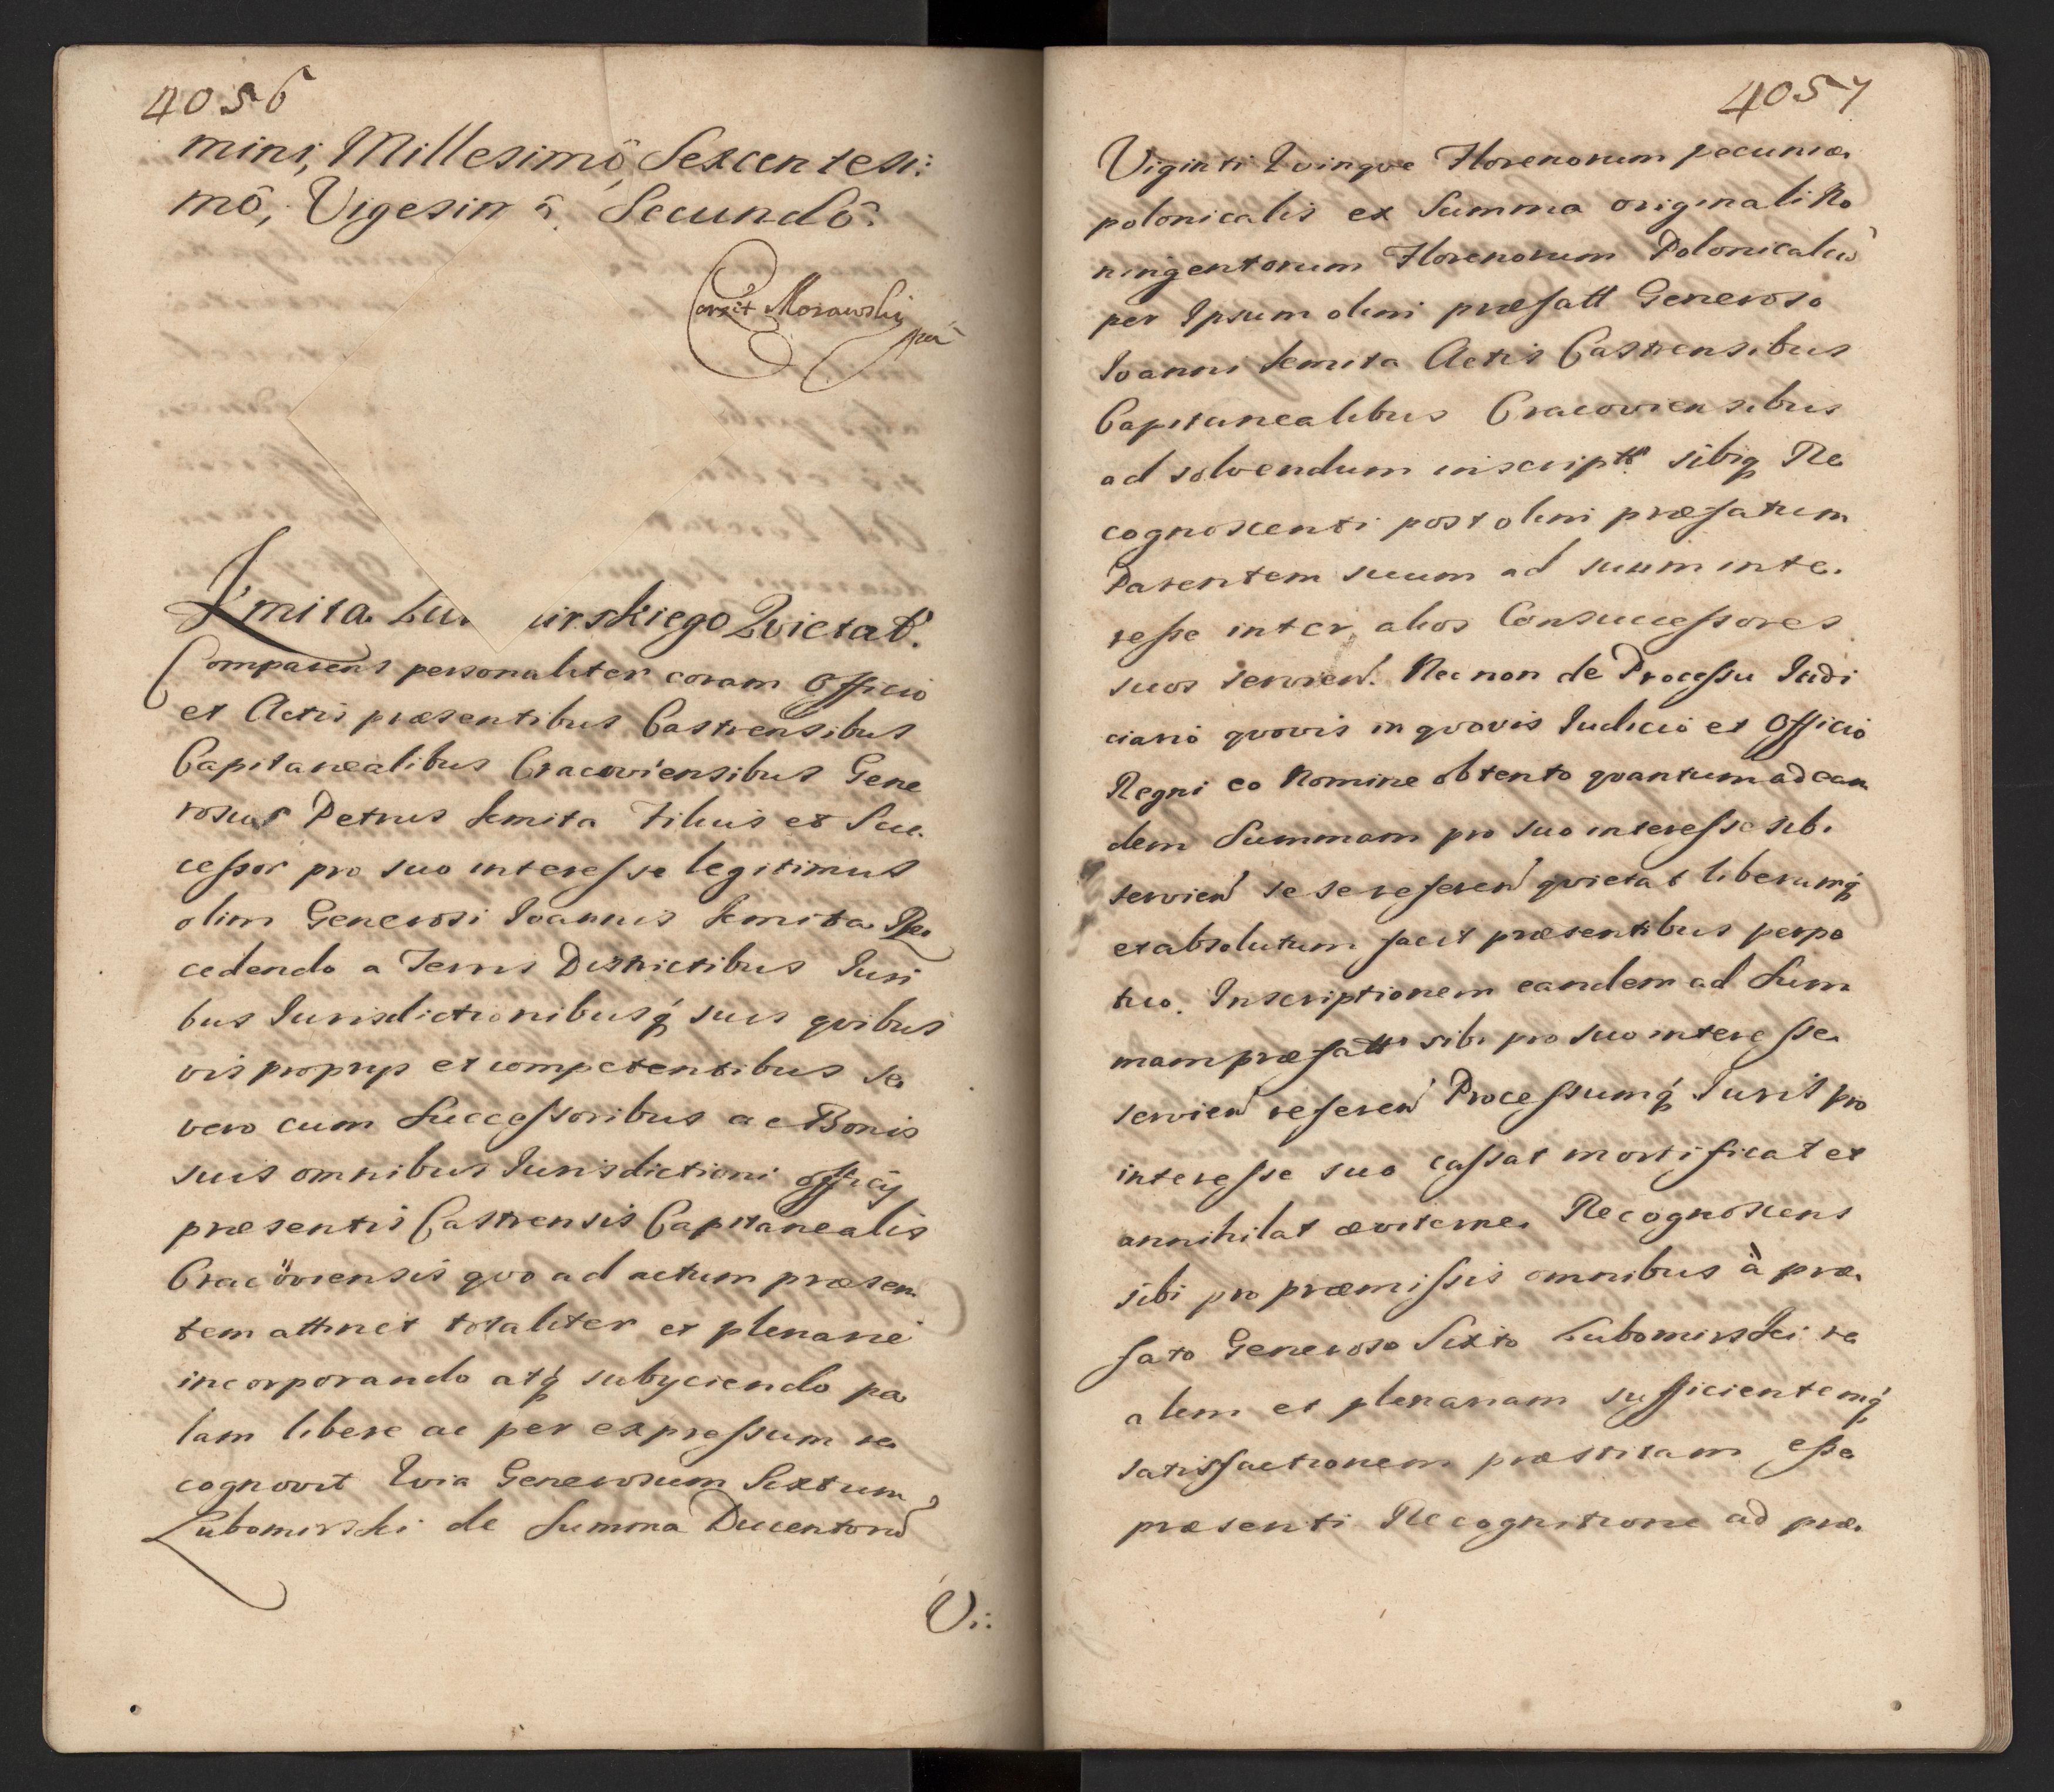 4056
mini, Millesimô, Sexcentesi:
mô, Vigesimô. Secundô.
Corrit Morawski
mpa
Kmita Lu irskiego Qvietat.
Comparens personaliter coram Officio
et Actis præsentibus Castrensibus
Capitanealibus Cracoviensibus Gene
rosus Petrus Kmita Filius et Suc
cessor pro suo interesse legitimus
olim Generosi Joannis Kmita Re
cedendo a Terris Districtibus Juri
bus Jurisdictionibusq́ suis qvibus
vis proprijs et competentibus se
vero cum Successoribus ac Bonis
suis omnibus Jurisdictioni officij
præsentis Castrensis Capitanealis
Cracoviensis qvo ad actum præsen
tem attinet totaliter et plenarie
incorporando atq́ subyciendo pa
lam libere ac per expressum re
cognovit Qvia Generosum Sextum
Lubomirski de Summa Ducentorũ
Vi:
4057
Viginti Qvinqve Florenorum pecuniæ
polonicalis ex Summa originali No
ningentorum Florenorum Polonicaliũ
per Ipsum olim præfatt Generoso
Joanni Kmita Actis Castrensibus
Capitanealibus Cracoviensibus
ad solvendum inscriptt sibiq Re
cognoscenti post olim præfatum
Parentem suum ad suum inte
resse inter alios Consuccessores
suos servien. Nec non de Processu Judi
ciario qvovis in qvovis Judicio et Officio
Regni eo Nomine obtento qvantum ad ean
dem Summam pro suo interesse sibi
servien se se referen qvietat liberumq́
et absolutum facit præsentibus perpe
tuo. Inscriptionem eandem ad Sum
mam præfatt sibi pro suo interesse
servien referen Processumq́ Juris pro
interesse suo cassat mortificat et
annihilat æviterne Recognoscens
sibi pro præmissis omnibus à præ
fato Generoso Sixto Lubomirski re
alem et plenariam sufficientemq́
satisfactionem præstitam esse
præsenti Recognitione ad præ